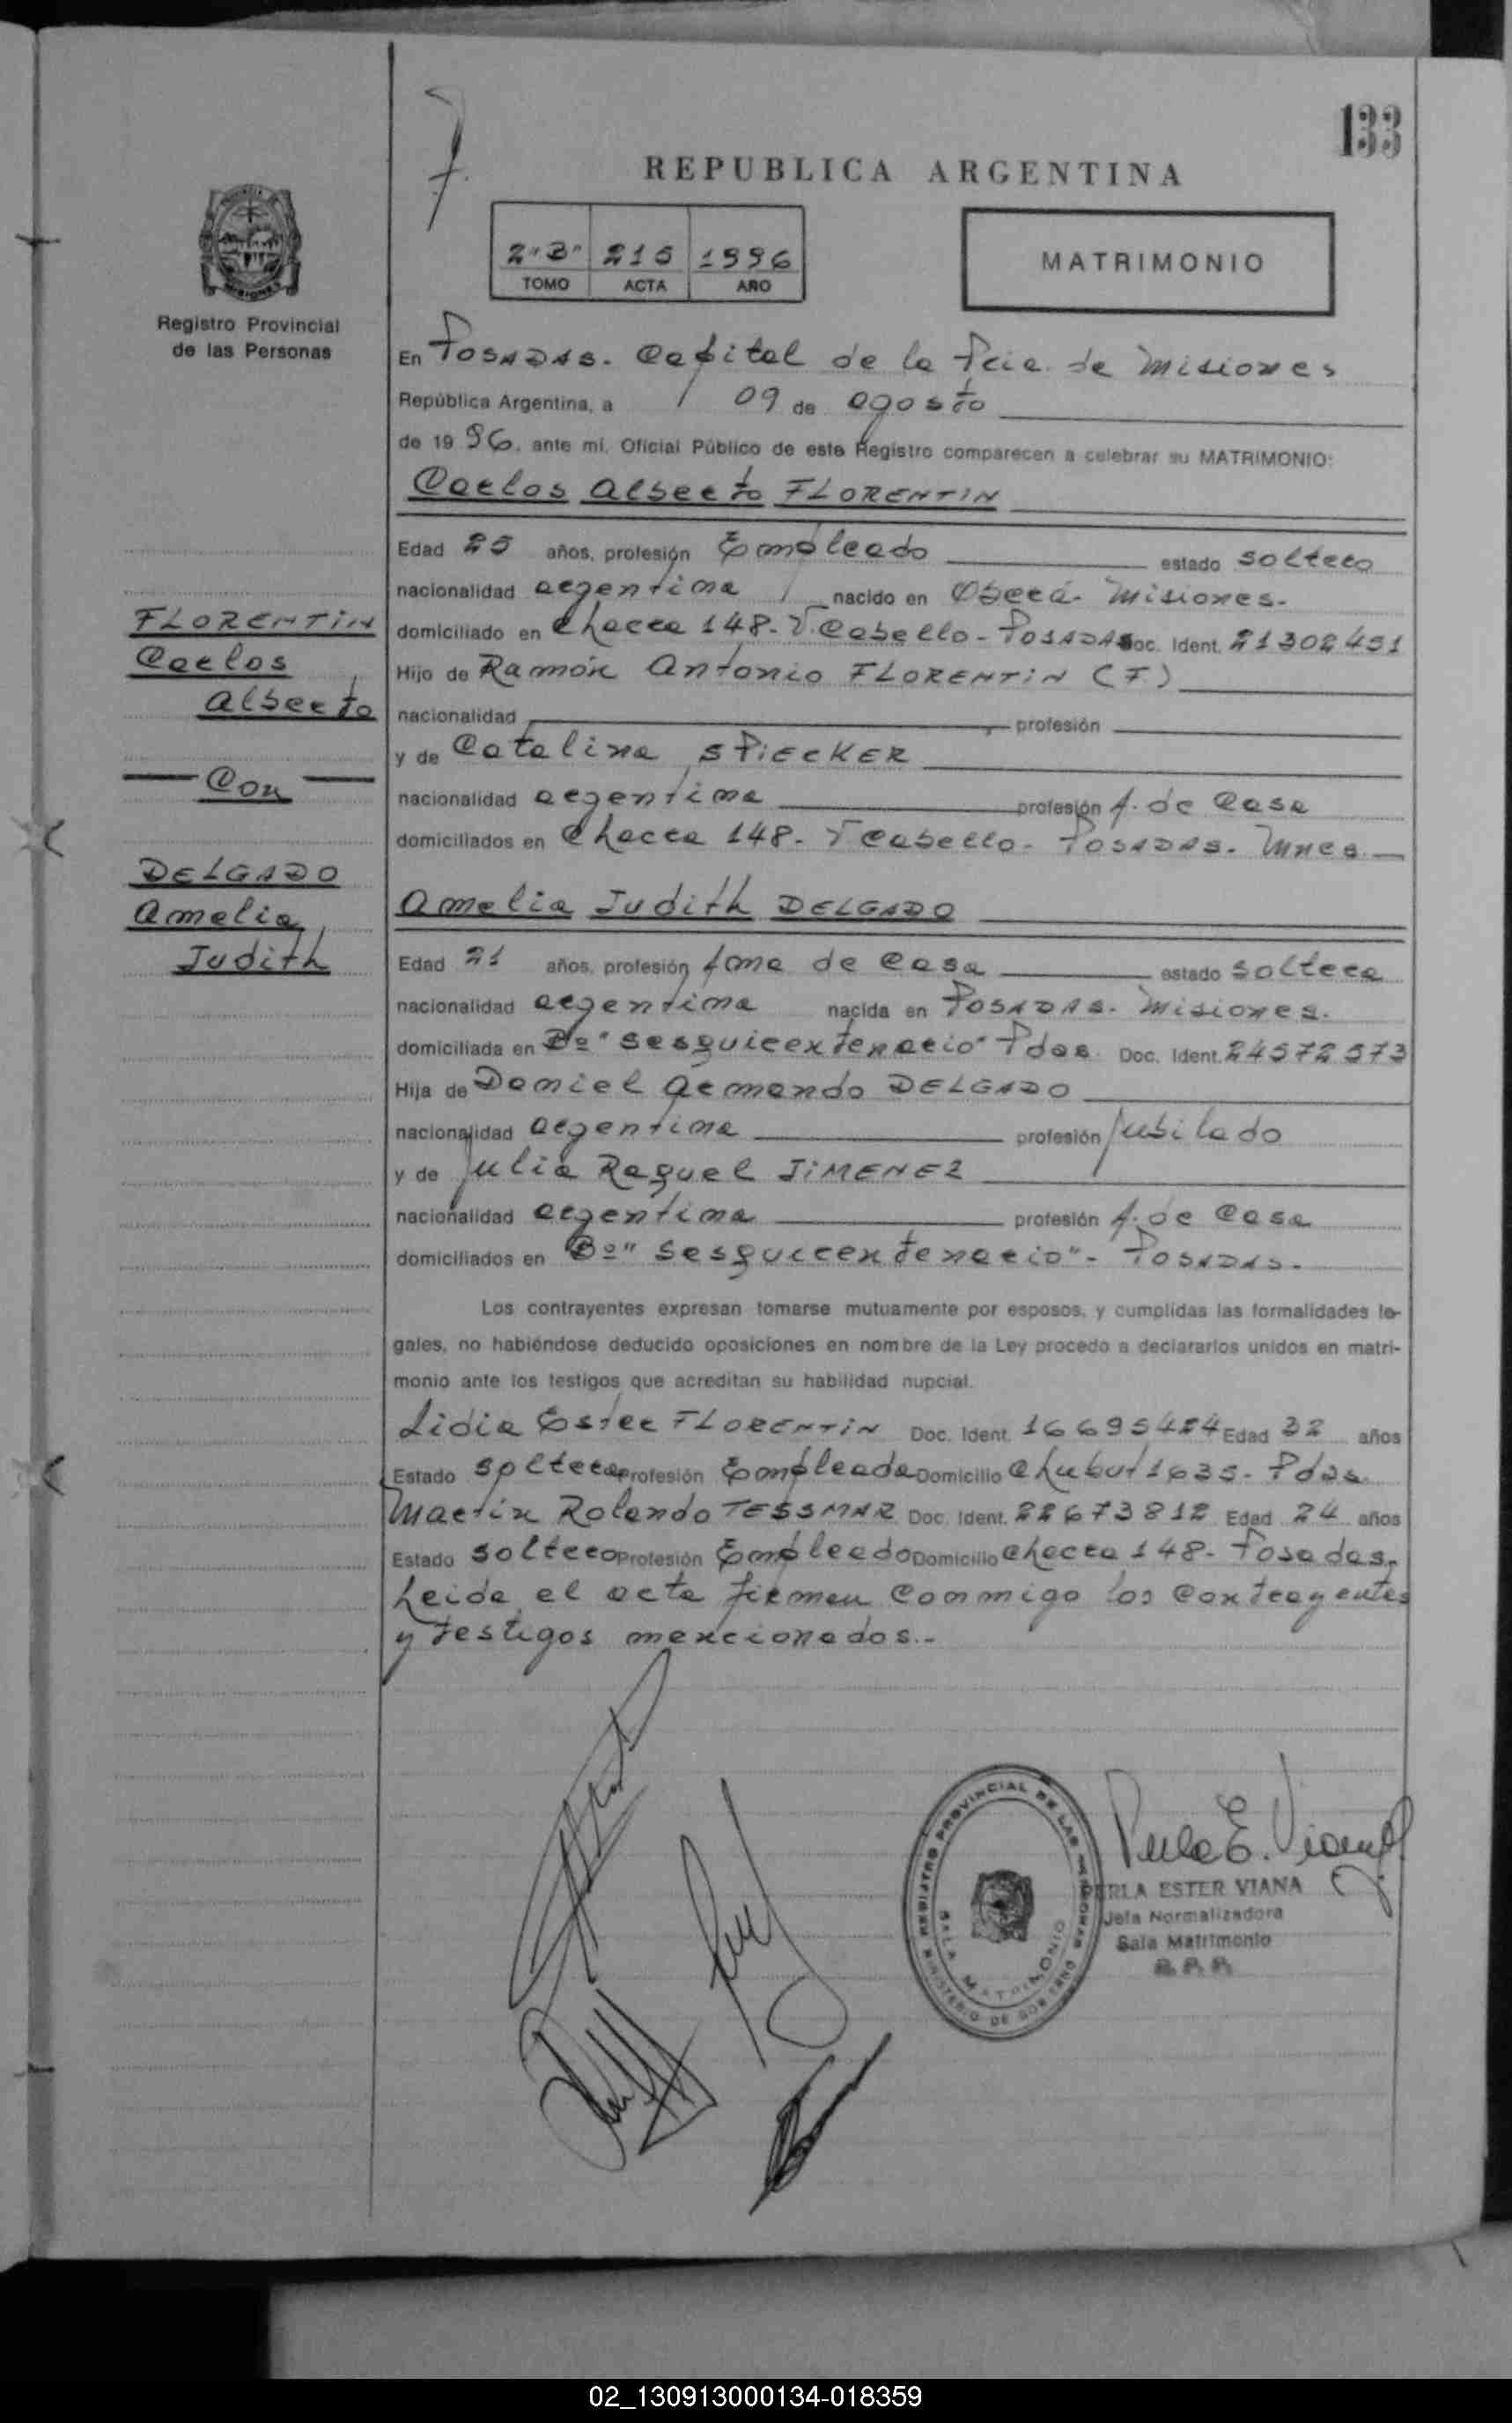 133
REPUBLICA ARGENTINA
2"B" 215 1996
TOMO ACTA AÑO
MATRIMONIO
Registro Provincial
de las Personas
En Posadas. Capital de la Pcia. de Misiones
República Argentina, a 09 de agosto
de 1996, ante mí, Oficial Público de este Registro comparecen a celebrar su MATRIMONIO:
Carlos Alberto FLORENTIN
Edad 25 años, profesión Empleado estado soltero
nacionalidad argentina nacido en Oberá. Misiones.
domiciliado en Chacra 148. V. Cabello - Posadas Doc. Ident. 21302451
Hijo de Ramón Antonio FLORENTIN (F)
nacionalidad profesión
y de Catalina SPIECKER
nacionalidad argentina profesión A. de Casa
domiciliados en Chacra 148. V Cabello. Posadas. Mnes.
FLORENTIN
Carlos
Alberto
Con
DELGADO
Amelia
Judith
Amelia Judith DELGADO
Edad 21 años, profesión Ama de Casa estado soltera
nacionalidad argentina nacida en Posadas. Misiones.
domiciliada en Bº "Sesquicentenario" Pdas. Doc. Ident. 24572573
Hija de Daniel Armando DELGADO
nacionalidad argentina profesión Jubilado
y de Julia Raquel JIMENEZ
nacionalidad argentina profesión A. de Casa
domiciliados en Bº "Sesquicentenario" - Posadas.
Los contrayentes expresan tomarse mutuamente por esposos, y cumplidas las formalidades le-
gales, no habiéndose deducido oposiciones en nombre de la Ley procedo a declararlos unidos en matri-
monio ante los testigos que acreditan su habilidad nupcial.
Lidia Ester FLORENTIN Doc. Ident. 16695424 Edad 32 años
Estado soltera Profesión Empleada Domicilio Chubut 1635. Pdas.
Martín Rolando TESSMAR Doc. Ident. 22673812 Edad 24 años
Estado soltero Profesión Empleado Domicilio Chacra 148. Posadas.
Leída el acta firman conmigo los contrayentes
y testigos mencionados.-
REGISTRO PROVINCIAL DE LAS PERSONAS
SALA MATRIMONIO
MINISTERIO DE GOBIERNO
Perla E. Viana
PERLA ESTER VIANA
Jefa Normalizadora
Sala Matrimonio
R. P. P.
02_130913000134-018359